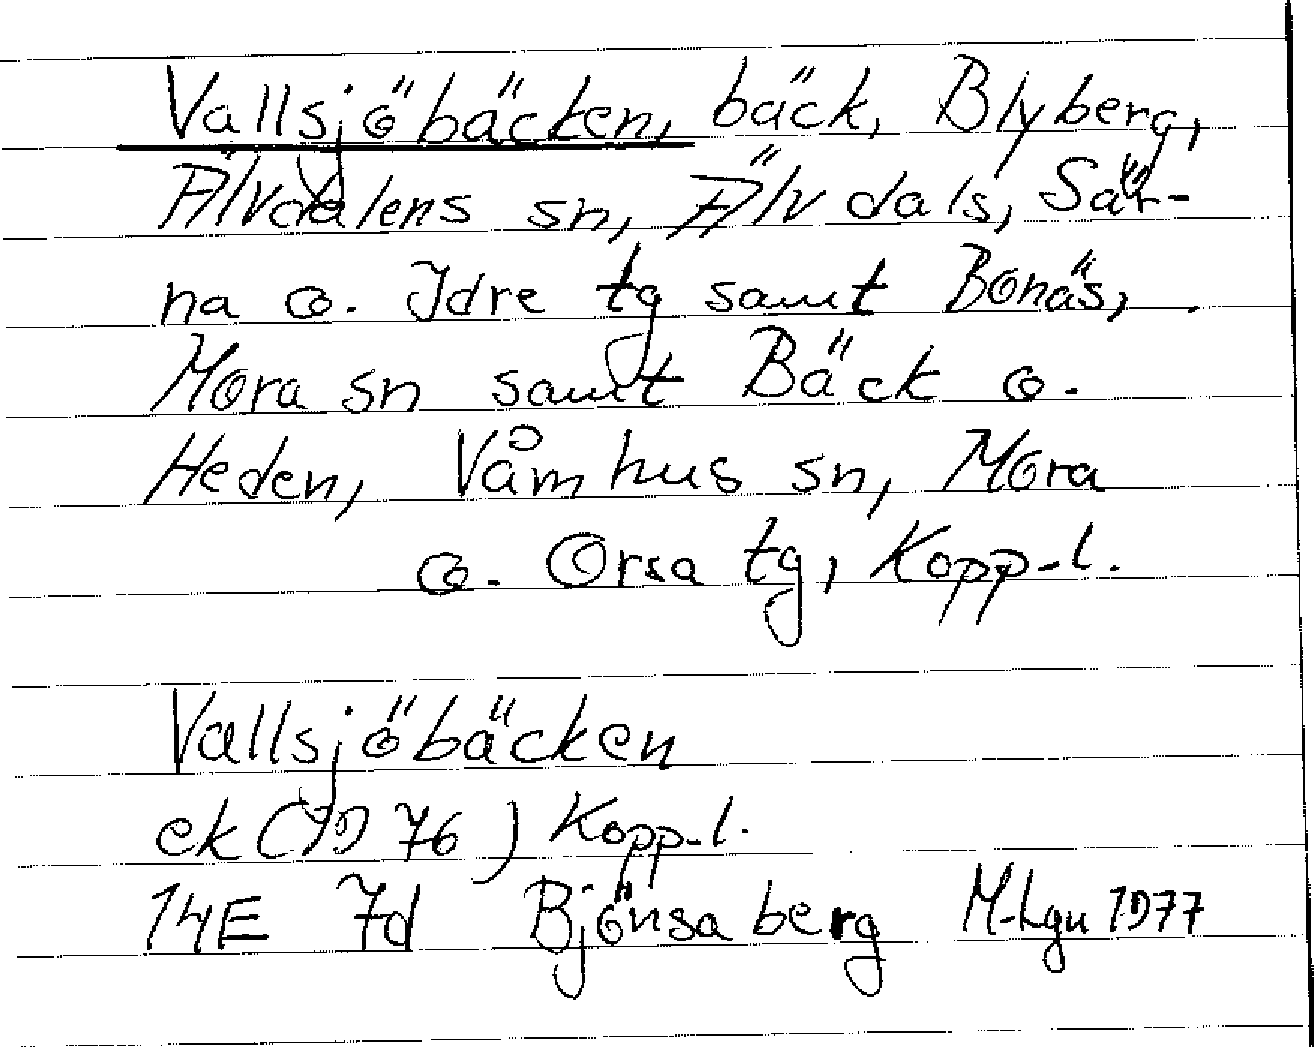 Vallsjöbäcken, bäck, Blyberg,
Älvdalens sn, Älvdals, Sär-
na o. Idre tg samt Bonäs,
Mora sn samt Bäck o.
Heden, Våmhus sn, Mora
o. Orsa tg, Kopp-l.
Vallsjöbäcken
ek (1976) Kopp-l.
14E 7d Björnsaberg M-Lgn 1977